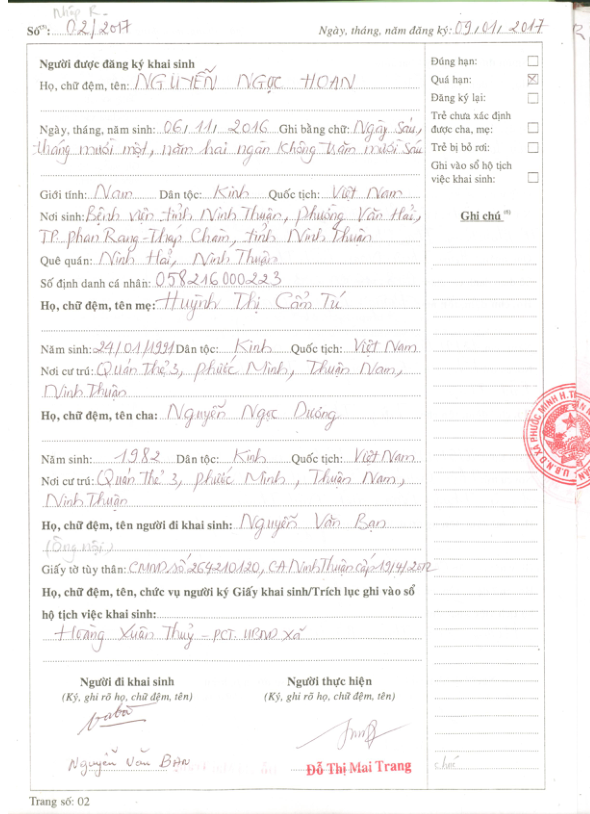 Nhập R.
Số⁽¹⁾: 02/2017
Ngày, tháng, năm đăng ký: 09/01/2017
Người được đăng ký khai sinh
Họ, chữ đệm, tên: NGUYỄN NGỌC HOAN
Ngày, tháng, năm sinh: 06/11/2016 Ghi bằng chữ: Ngày sáu,
tháng mười một, năm hai ngàn không trăm mười sáu
Giới tính: Nam Dân tộc: Kinh Quốc tịch: Việt Nam
Nơi sinh: Bệnh viện tỉnh Ninh Thuận, phường Văn Hải,
TP. Phan Rang-Tháp Chàm, tỉnh Ninh Thuận
Quê quán: Ninh Hải, Ninh Thuận
Số định danh cá nhân: 058216000223
Họ, chữ đệm, tên mẹ: Huỳnh Thị Cẩm Tú
Năm sinh: 24/01/1991 Dân tộc: Kinh Quốc tịch: Việt Nam
Nơi cư trú: Quán Thẻ 3, Phước Minh, Thuận Nam,
Ninh Thuận
Họ, chữ đệm, tên cha: Nguyễn Ngọc Dương
Năm sinh: 1982 Dân tộc: Kinh Quốc tịch: Việt Nam
Nơi cư trú: Quán Thẻ 3, Phước Minh, Thuận Nam,
Ninh Thuận
Họ, chữ đệm, tên người đi khai sinh: Nguyễn Văn Bạn
(Ông nội)
Giấy tờ tùy thân: CMND số 264210120, CA. Ninh Thuận cấp 19/4/2012
Họ, chữ đệm, tên, chức vụ người ký Giấy khai sinh/Trích lục ghi vào sổ
hộ tịch việc khai sinh:
Hoàng Xuân Thuỷ - PCT. UBND xã
Người đi khai sinh
(Ký, ghi rõ họ, chữ đệm, tên)
Nguyễn Văn Bạn
Người thực hiện
(Ký, ghi rõ họ, chữ đệm, tên)
Đỗ Thị Mai Trang
Đúng hạn:
Quá hạn:
Đăng ký lại:
Trẻ chưa xác định
được cha, mẹ:
Trẻ bị bỏ rơi:
Ghi vào sổ hộ tịch
việc khai sinh:
Ghi chú ⁽⁸⁾
U.B.N.D XÃ PHƯỚC MINH H.T
Trang số: 02